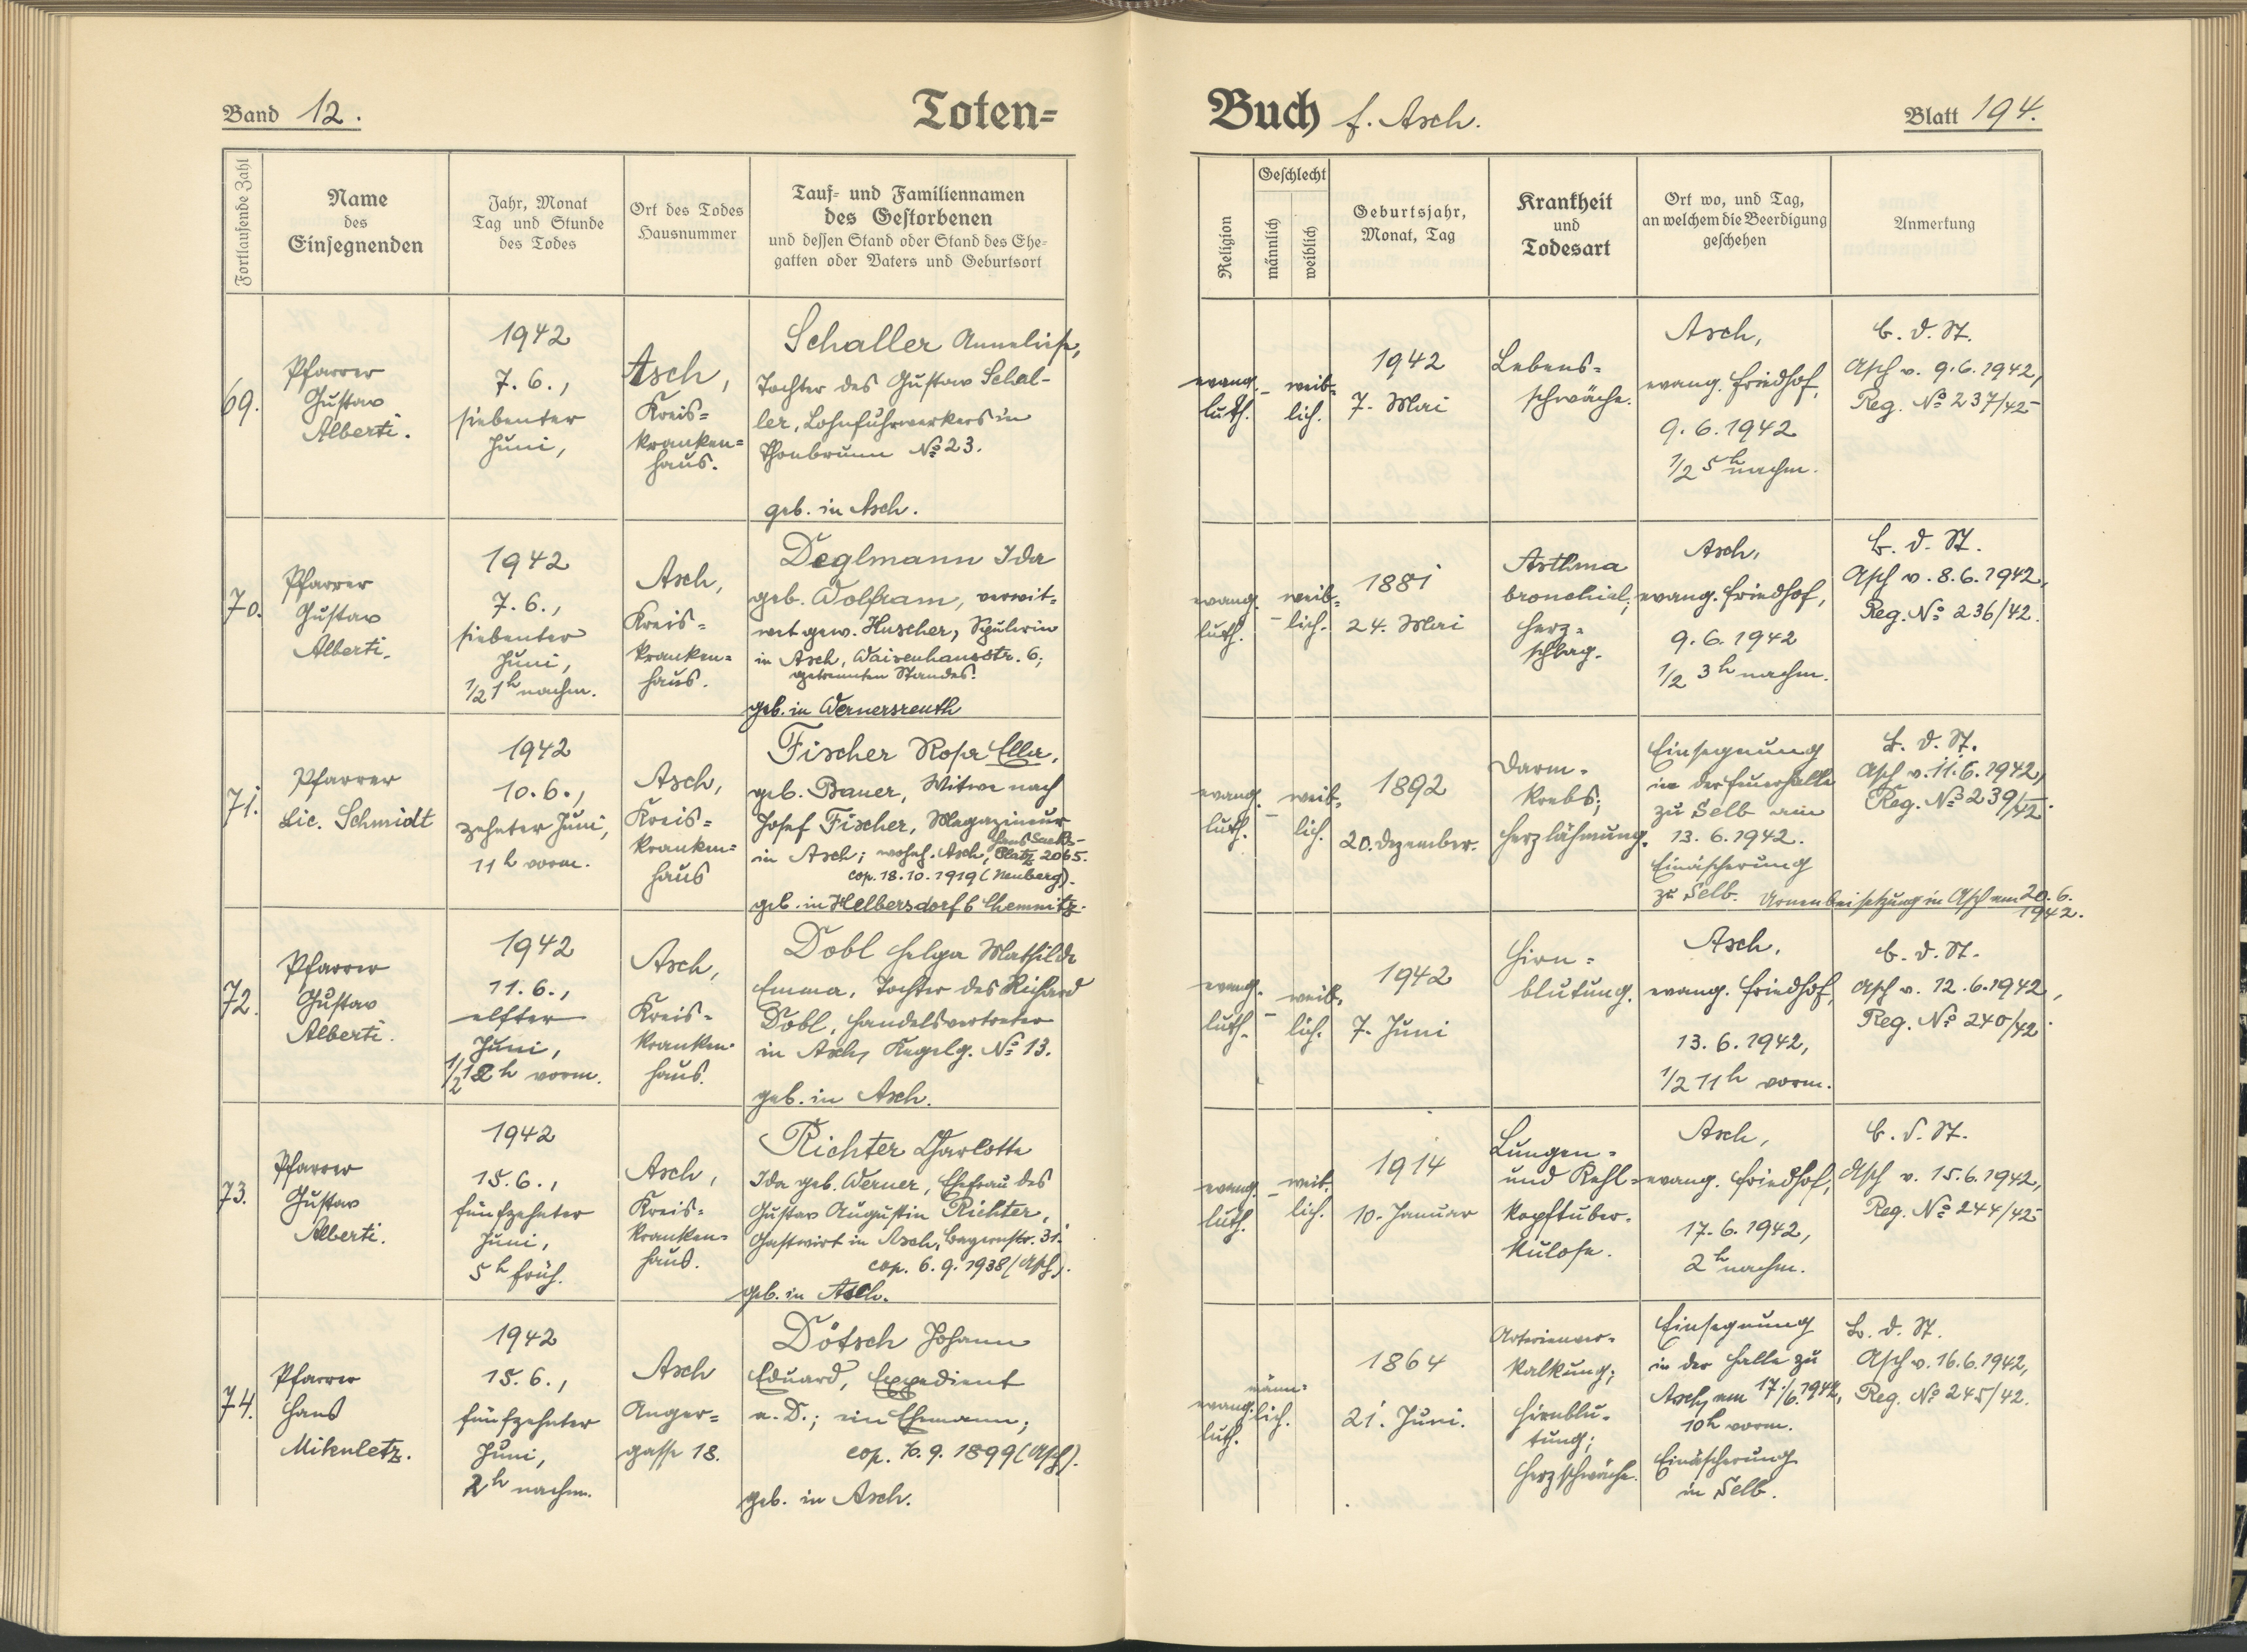 Band 12.
Toten=
Fortlaufende Zahl
Name
des
Einsegnenden
Jahr, Monat
Tag und Stunde
des Todes
Ort des Todes
Hausnummer
Tauf= und Familiennamen
des Gestorbenen
und dessen Stand oder Stand des Ehe=
gatten oder Vaters und Geburtsort
69.
Pfarrer
Gustav
Alberti.
1942
7. 6.,
siebenter
Juni,
Asch,
Kreis=
kranken=
haus.
Schaller Anneliese,
Tochter des Gustav Schal-
ler, Lohnfuhrwerkers in
Thonbrunn No 23.
geb. in Asch.
70.
Pfarrer
Gustav
Alberti.
1942
7. 6.,
siebenter
Juni,
1/2 1h nachm.
Asch,
Kreis=
kranken=
haus.
Deglmann Ida
geb. Wolfram, verwit=
wet gew. Huscher, Spulerin
in Asch, Waisenhausstr. 6;
getrennten Standes.
geb. in Wernersreuth
71.
Pfarrer
Lic. Schmidt
1942
10. 6.,
zehnter Juni,
11 h vorm.
Asch,
Kreis=
kranken=
haus
Fischer Rosa Ella,
geb. Bauer, Witwe nach
Josef Fischer, Magazineur
in Asch; wohnh. Asch, Hans Sachs-
Platz 2065.
cop. 18. 10. 1919 (Neuberg).
geb. in Helbersdorf b Chemnitz.
72.
Pfarrer
Gustav
Alberti.
1942
11. 6.,
elfter
Juni,
1/2 12 h vorm.
Asch,
Kreis=
kranken=
haus.
Dobl Helga Mathilde
Emma, Tochter des Richard
Dobl, Handelsvertreter
in Asch, Kegelg. No 13.
geb. in Asch.
73.
Pfarrer
Gustav
Alberti.
1942
15. 6.,
fünfzehnter
Juni,
5 h früh.
Asch,
Kreis=
kranken=
haus.
Richter Charlotte
Ida geb. Werner, Ehefrau des
Gustav Augustin Richter,
Gastwirt in Asch, Bayernstr. 31.
cop. 6. 9. 1938 (Asch).
geb. in Asch.
74.
Pfarrer
Hans
Mikuletz.
1942
15. 6.,
fünfzehnter
Juni,
2 h nachm.
Asch
Anger=
gasse 18.
Dötsch Johann
Eduard, Expedient
a. D.; ein Ehemann;
cop. 9. 1899 (Asch).
geb. in Asch.
Buch f. Asch.
Blatt 194.
Religion
Geschlecht
männlich
weiblich
Geburtsjahr,
Monat, Tag
Krankheit
und
Todesart
Ort wo, und Tag,
an welchem die Beerdigung
geschehen
Anmerkung
evang.
luth.
–
weib=
lich.
1942
7. Mai
Lebens=
schwäche.
Asch,
evang. Friedhof,
9. 6. 1942
1/2 5 h nachm.
B. d. St.
Asch v. 9. 6. 1942,
Reg. No 237/42
evang.
luth.
–
weib=
lich.
1881
24. Mai
Asthma
bronchial;
Herz=
schlag.
Asch,
evang. Friedhof,
9. 6. 1942
1/2 3 h nachm.
B. d. St.
Asch v. 8. 6. 1942,
Reg. No 236/42.
evang.
luth.
–
weib=
lich.
1892
20. Dezember.
Darm-
krebs;
Herzlähmung.
Einsegnung
in der Feuerhalle
zu Selb am
13. 6. 1942.
Einäscherung
zu Selb. Urnenbeisetzung in Asch am 20. 6.
1942.
B. d. St.
Asch v. 11. 6. 1942,
Reg. No 239/42.
evang.
luth.
–
weib=
lich.
1942
7. Juni
Hirn=
blutung.
Asch,
evang. Friedhof,
13. 6. 1942,
1/2 11 h vorm.
B. d. St.
Asch v. 12. 6. 1942,
Reg. No 240/42.
evang.
luth.
–
weib.
lich.
1914
10. Januar
Lungen=
und Kehl=
kopftuber=
kulose.
Asch,
evang. Friedhof,
17. 6. 1942,
2 h nachm.
B. d. St.
Asch v. 15. 6. 1942,
Reg. No 244/42
evang.
luth.
männ=
lich.
1864
21. Juni.
Arterienver=
kalkung;
Hirnblu=
tung;
Herzschwäche.
Einsegnung
in der Halle zu
Asch, am 17./6. 1942,
10 h vorm.
Einäscherung
in Selb.
B. d. St.
Asch v. 16. 6. 1942,
Reg. No 245/42.